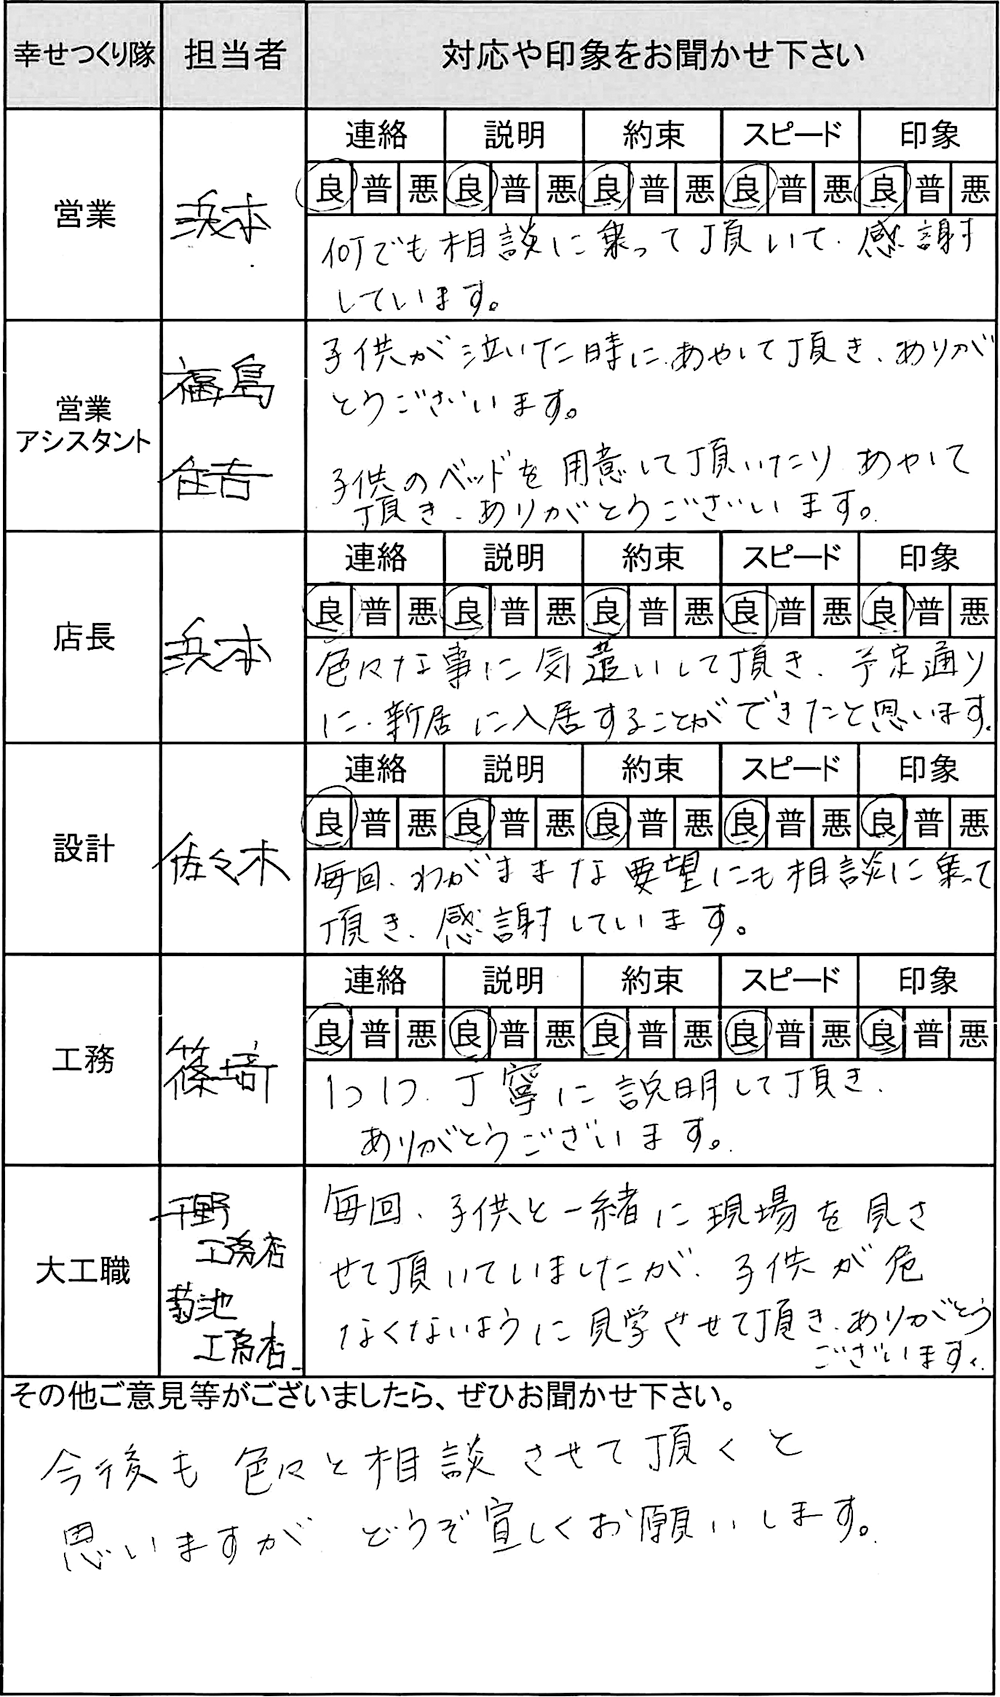 幸せつくり隊 担当者 対応や印象をお聞かせ下さい
営業 浜本
連絡 説明 約束 スピード 印象
良 普 悪 良 普 悪 良 普 悪 良 普 悪 良 普 悪
何でも相談に乗って頂いて、感謝
しています。
営業
アシスタント
福島
住吉
子供が泣いた時に、あやして頂き、ありが
とうございます。
子供のベッドを用意して頂いたり、あやして
頂き、ありがとうございます。
店長 浜本
連絡 説明 約束 スピード 印象
良 普 悪 良 普 悪 良 普 悪 良 普 悪 良 普 悪
色々な事に気遣いして頂き、予定通り
に、新居に入居することができたと思います。
設計 佐々木
連絡 説明 約束 スピード 印象
良 普 悪 良 普 悪 良 普 悪 良 普 悪 良 普 悪
毎回、わがままな要望にも相談に乗って
頂き、感謝しています。
工務 篠埼
連絡 説明 約束 スピード 印象
良 普 悪 良 普 悪 良 普 悪 良 普 悪 良 普 悪
1つ1つ、丁寧に説明して頂き、
ありがとうございます。
大工職
千野
工務店
菊池
工務店
毎回、子供と一緒に現場を見さ
せて頂いていましたが、子供が危
なくないように見学させて頂き、ありがとう
ございます。
その他ご意見等がございましたら、ぜひお聞かせ下さい。
今後も色々と相談させて頂くと
思いますが、どうぞ宜しくお願いします。